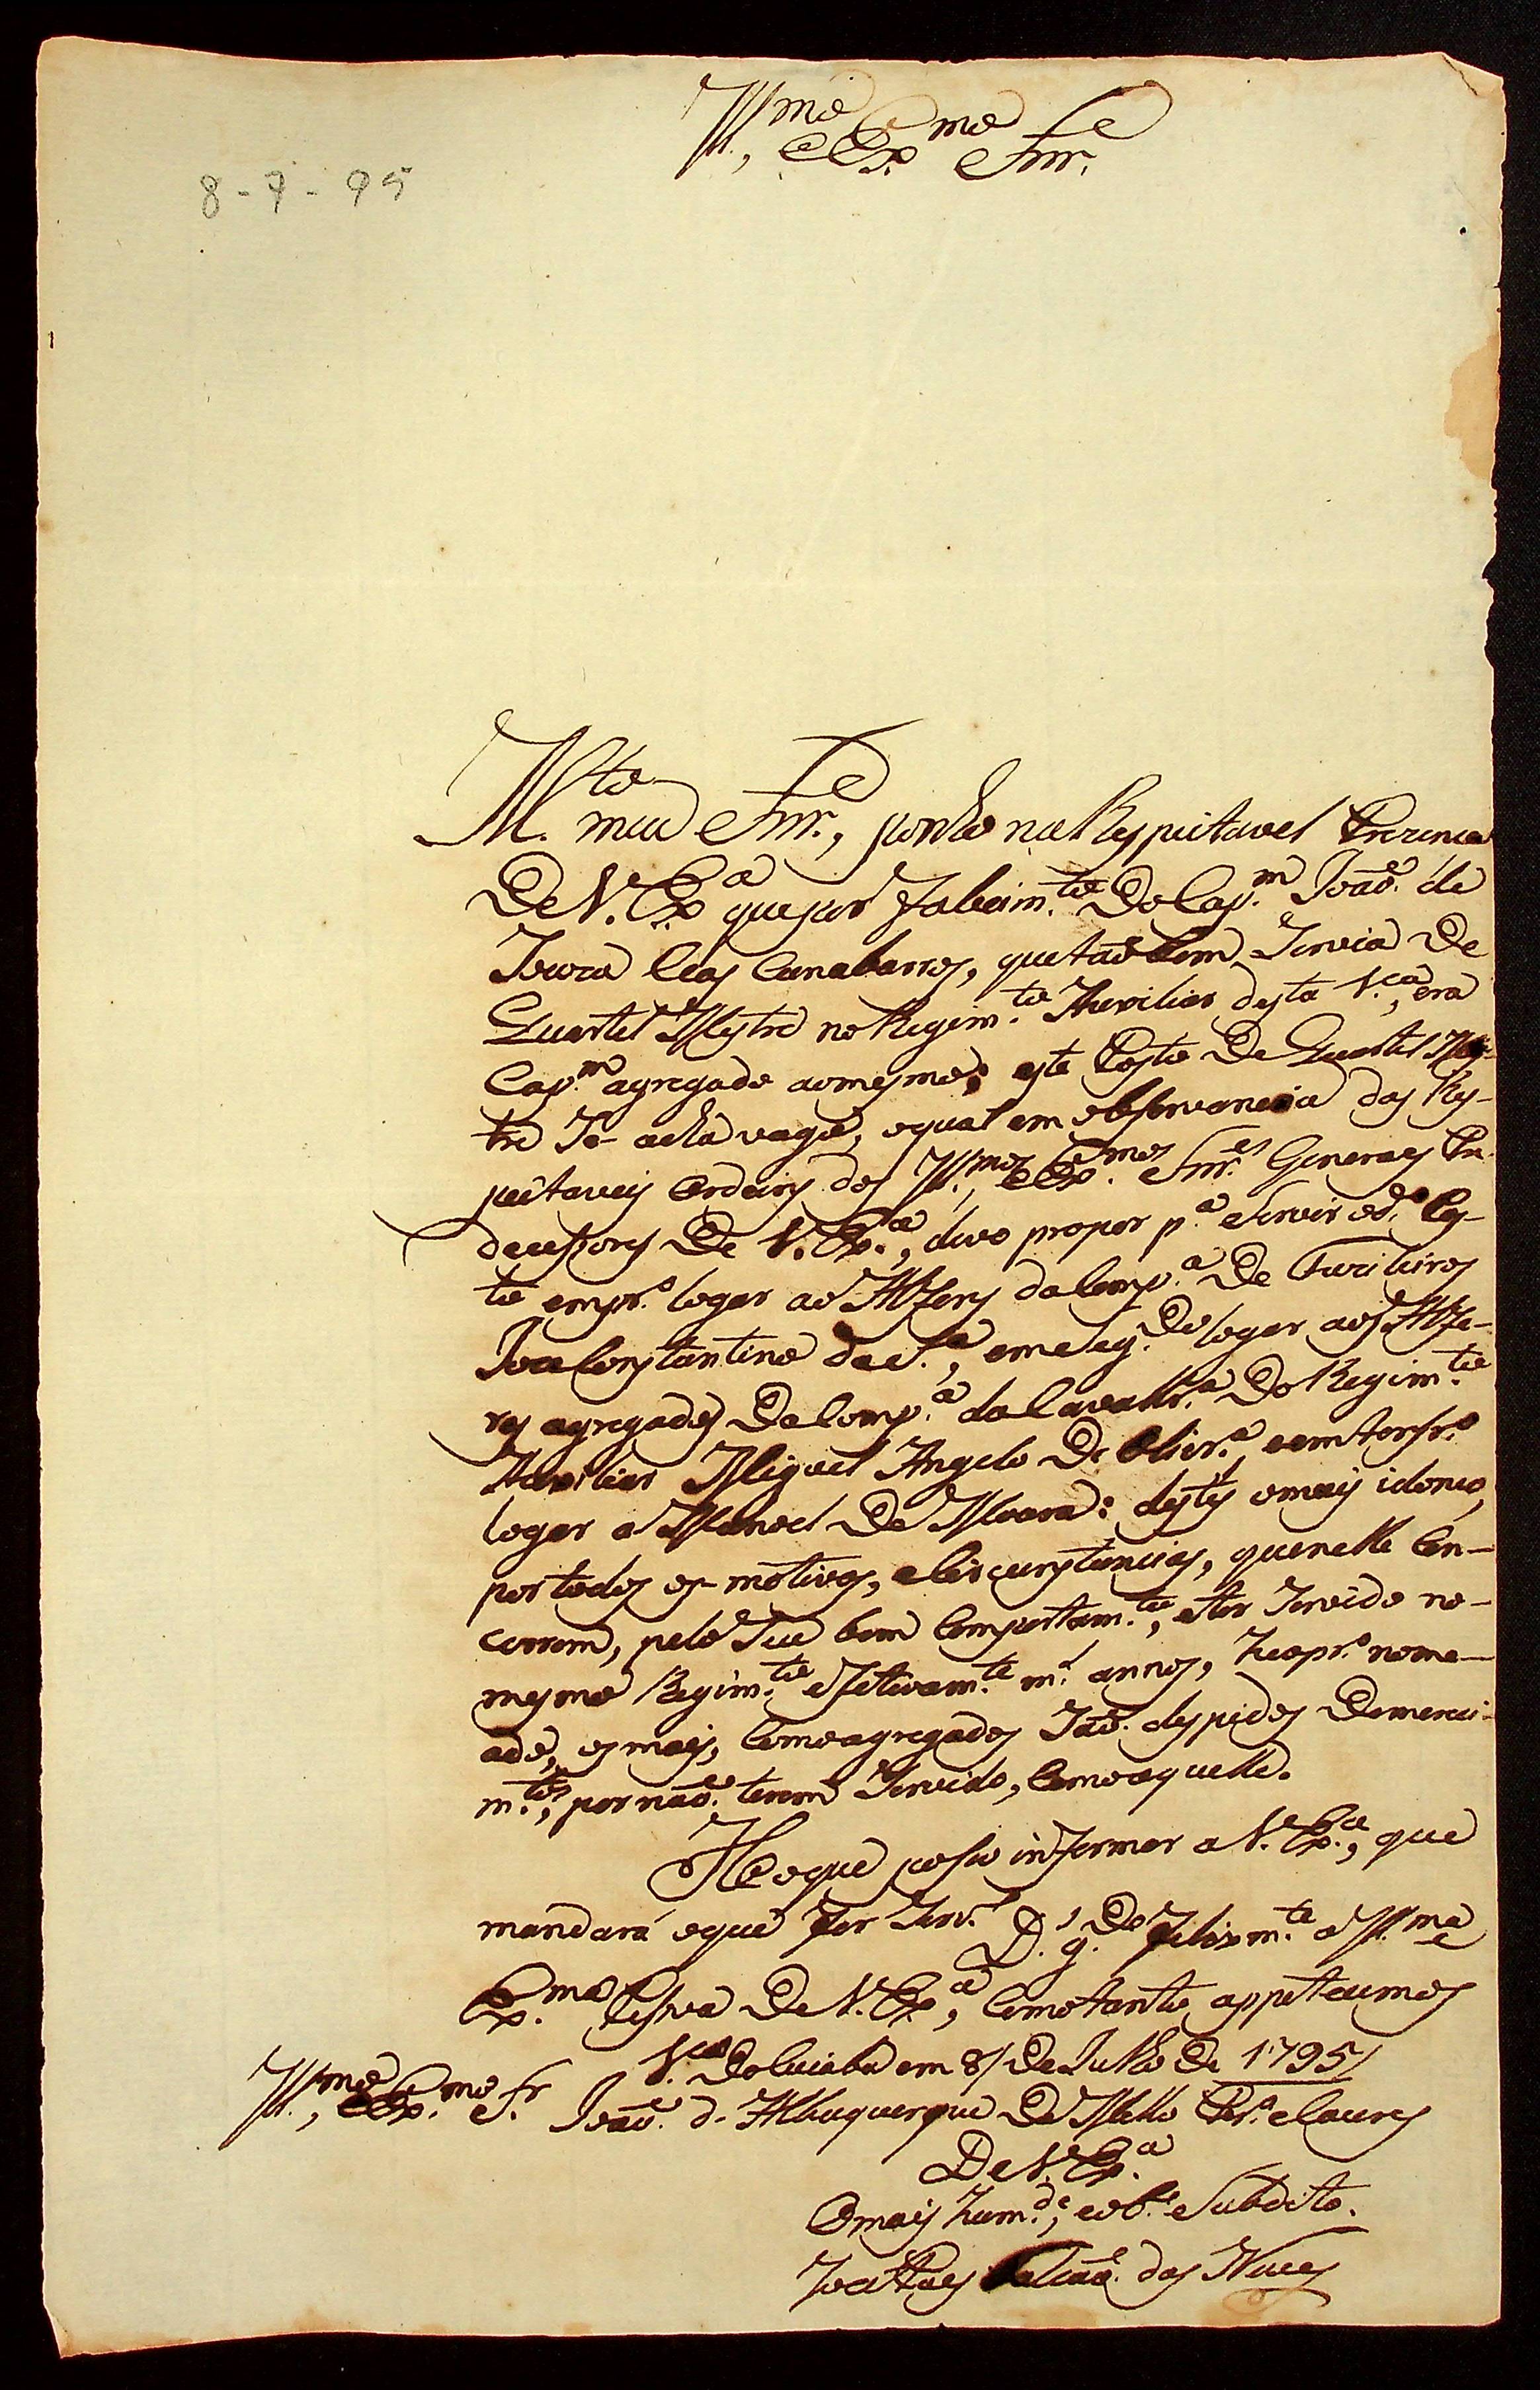 Ill.mo e Ex.mo Snr.
8-7-95
M.to meu Snr., ponho na Respeitavel Prezença
De V. Ex.a que por falecim.to Do Cap.m João de
Souza Canabarros, que taobem Servia De
Quartel Mestre no Regim.to Auxiliar desta V.ca, era
Cap.m agregado ao mesmo; este Posto De Quartel Mes-
tre Se acha vago, o qual em observancia das Res-
peitaveis Ordeins dos Ill.mos e Ex.mos Snr.es Generaes Pre-
decessores De V. Ex.a, devo propor p.a Servir o d.o Pos-
to em pr.o logar ao Alferes da Comp.a De Fuzileiros
Joze Constantino da S.a, em seg.do logar aos Alfe-
res agregados Da Comp.a da Cavallr.a Do Regim.to
Auxiliar Miguel Angelo De Olivr.a, e em tersr.o
logar a Manoel De Moura: destes o mais idoneo,
por todos os motivos, e circunstancias, que nelle Con-
correm, pelo Seu bom Comportam.to, e ter Servido no
mesmo Regim.to efetivam.te m.s annos, he o pr.o nome-
ado, os mais, Como agregados São despidos De mereci-
m.tos, por não terem Servido, Como aquelle.
He o que posso informar a V. Ex.a, que
mandará o que for Serv.o
D.s g.De felizm.te a Ill.ma e
Ex.ma Pesoa De V. Ex.a, Como tanto appetecemos
V.a Do Cuiabá em 8/ De Julho De 1795/
Ill.mo e Ex.mo Sr. João d'Albuquerque De Mello Per.a e Caceres
De V. Ex.a
O mais hum.de, e ob.e Subdito.
Joze Paes Falcão das Neves